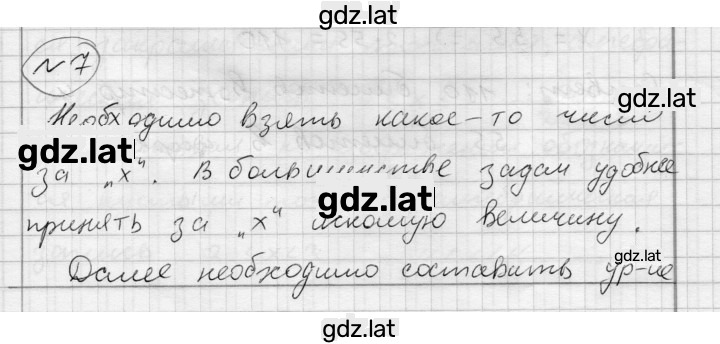 gdz.lat
№ 7
Необходимо взять какое-то число
gdz.lat
за „х“. В большинстве задач удобнее
gdz.lat
принять за „х“ искомую величину.
gdz.lat
Далее необходимо составить ур-ие
gdz.lat